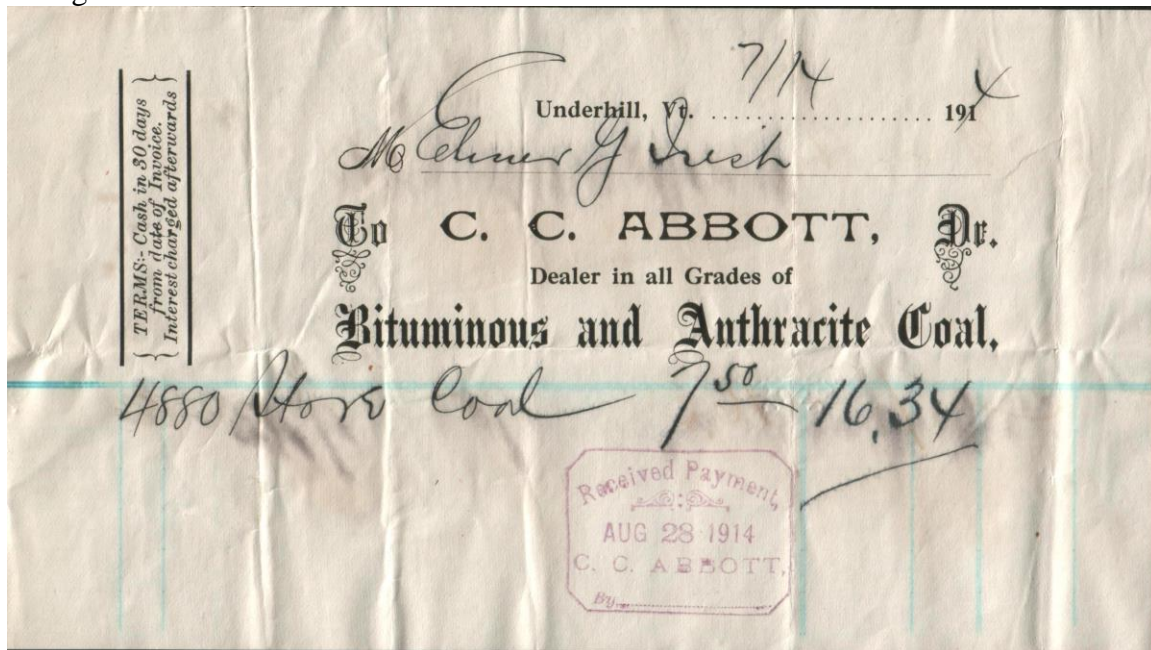 TERMS:- Cash in 30 days
from date of Invoice.
Interest charged afterwards
7/14
Underhill, Vt. .................... 1914
M Elmer G Irish
To C. C. ABBOTT, Dr.
Dealer in all Grades of
Bituminous and Anthracite Coal,
4880 Stove Coal 7 50 16.34
Received Payment,
AUG 28 1914
C. C. ABBOTT,
By